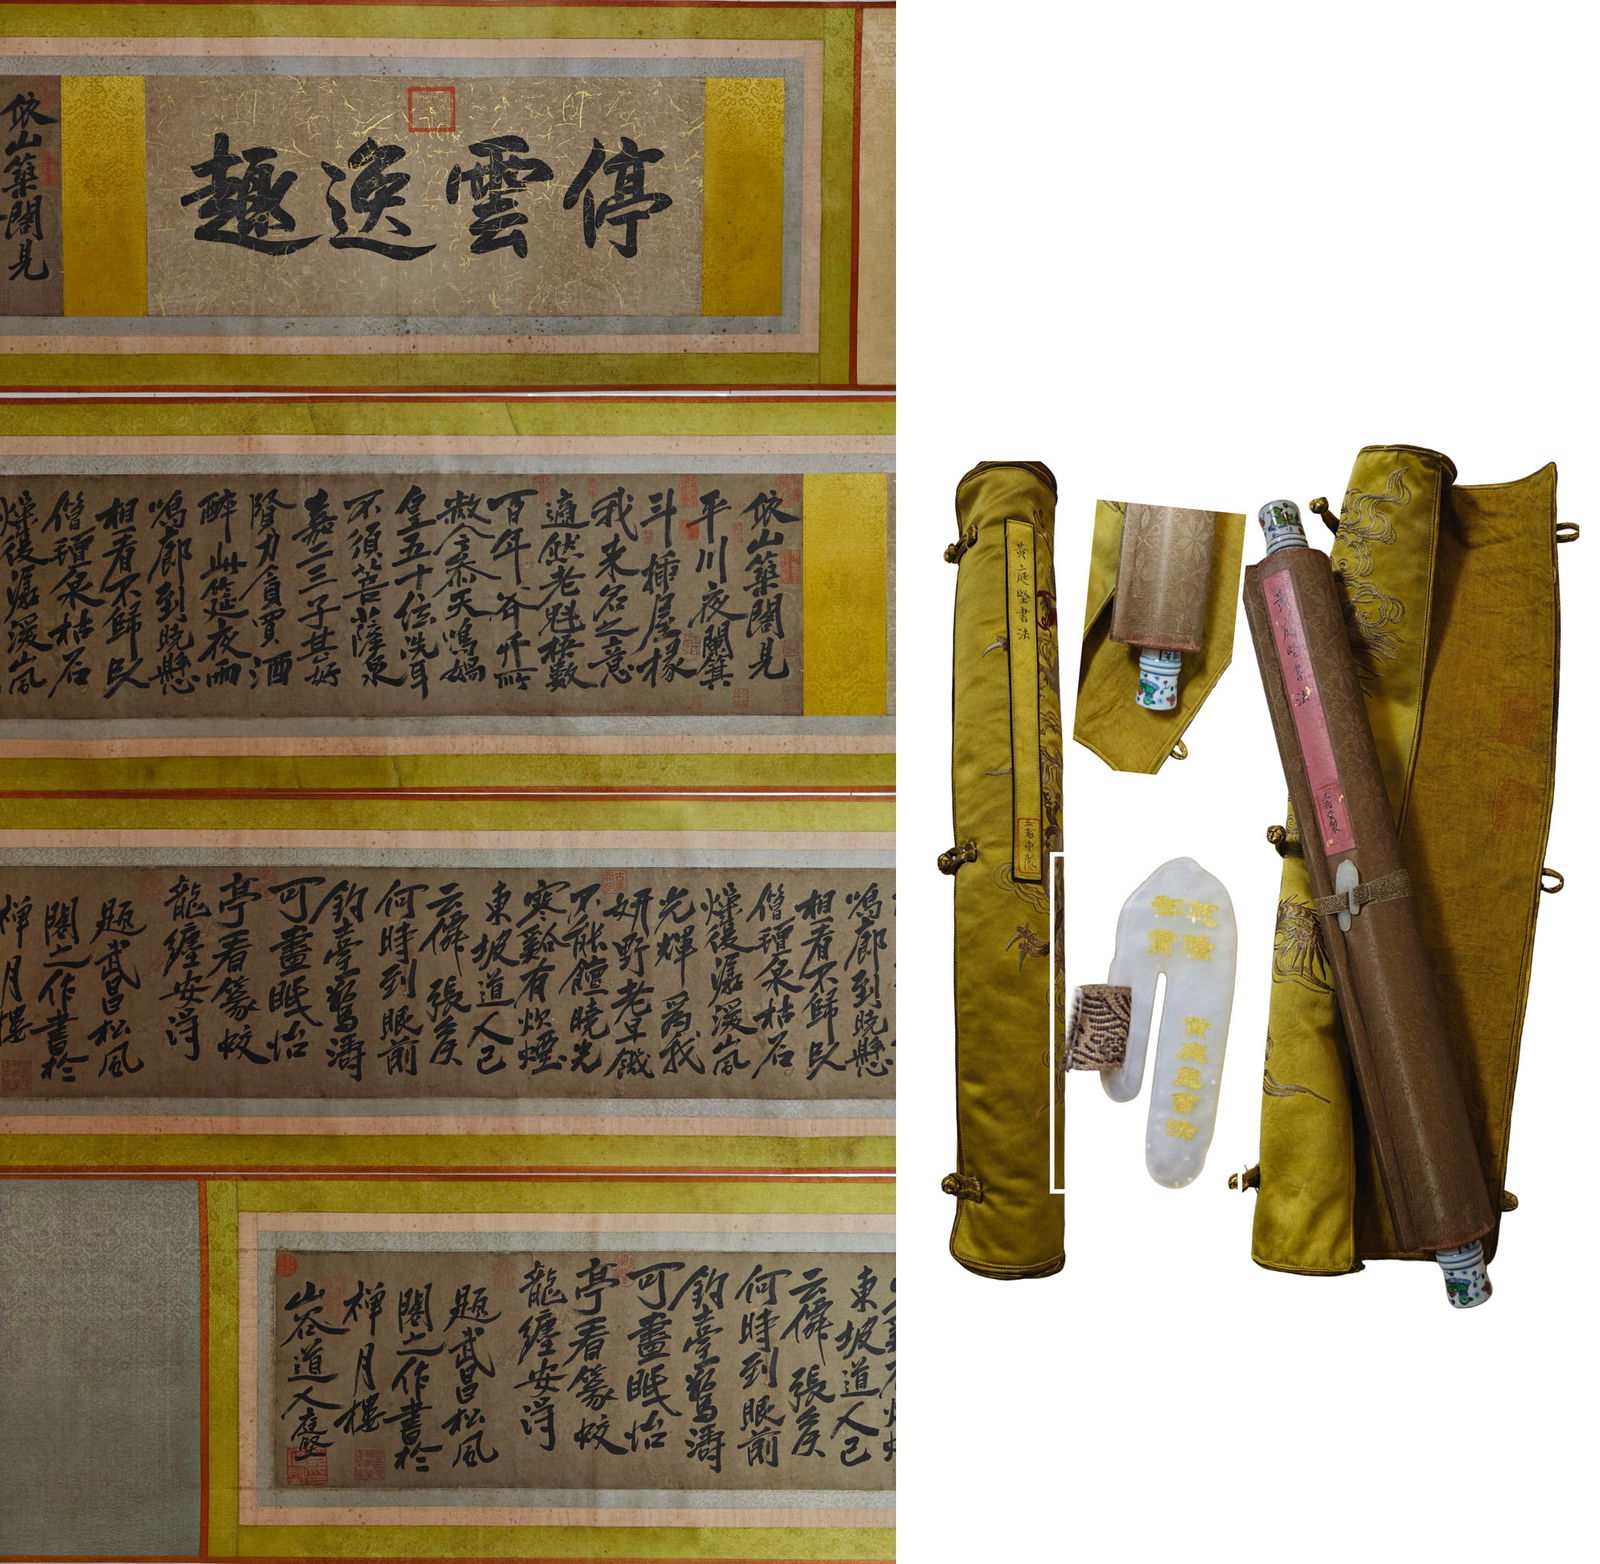 依山築閣見
停雲逸趣
依山築閣見
平川夜闌箕
斗插屋椽
我来名之意
適然老魁梧數
百年斧斤所
赦今参天鳴媧
皇五十弦洗耳
不須菩薩泉
嘉二三子甚好
力貪買酒
醉此筵夜雨
鳴廊到曉懸
相看不歸臥
僧氊泉枯石
燥復潺湲
鳴廊到曉懸
相看不歸臥
僧氊泉枯石
燥復潺湲
光輝為我
妍野老旱饑
不能饘曉光
寒谿有炊煙
東坡道人已
云僊張矦
何時到眼前
釣臺驚濤
可晝眠怡
亭看篆蛟
龍纏安得
題武昌松風
閣之作書於
禪月樓
東坡道人已
云僊張矦
何時到眼前
釣臺驚濤
可晝眠怡
亭看篆蛟
龍纏安得
題武昌松風
閣之作書於
禪月樓
山谷道人庭堅
黃庭堅書法
三希堂製
乾隆
御賞
黃庭堅書法
黃庭堅書法
三希堂製